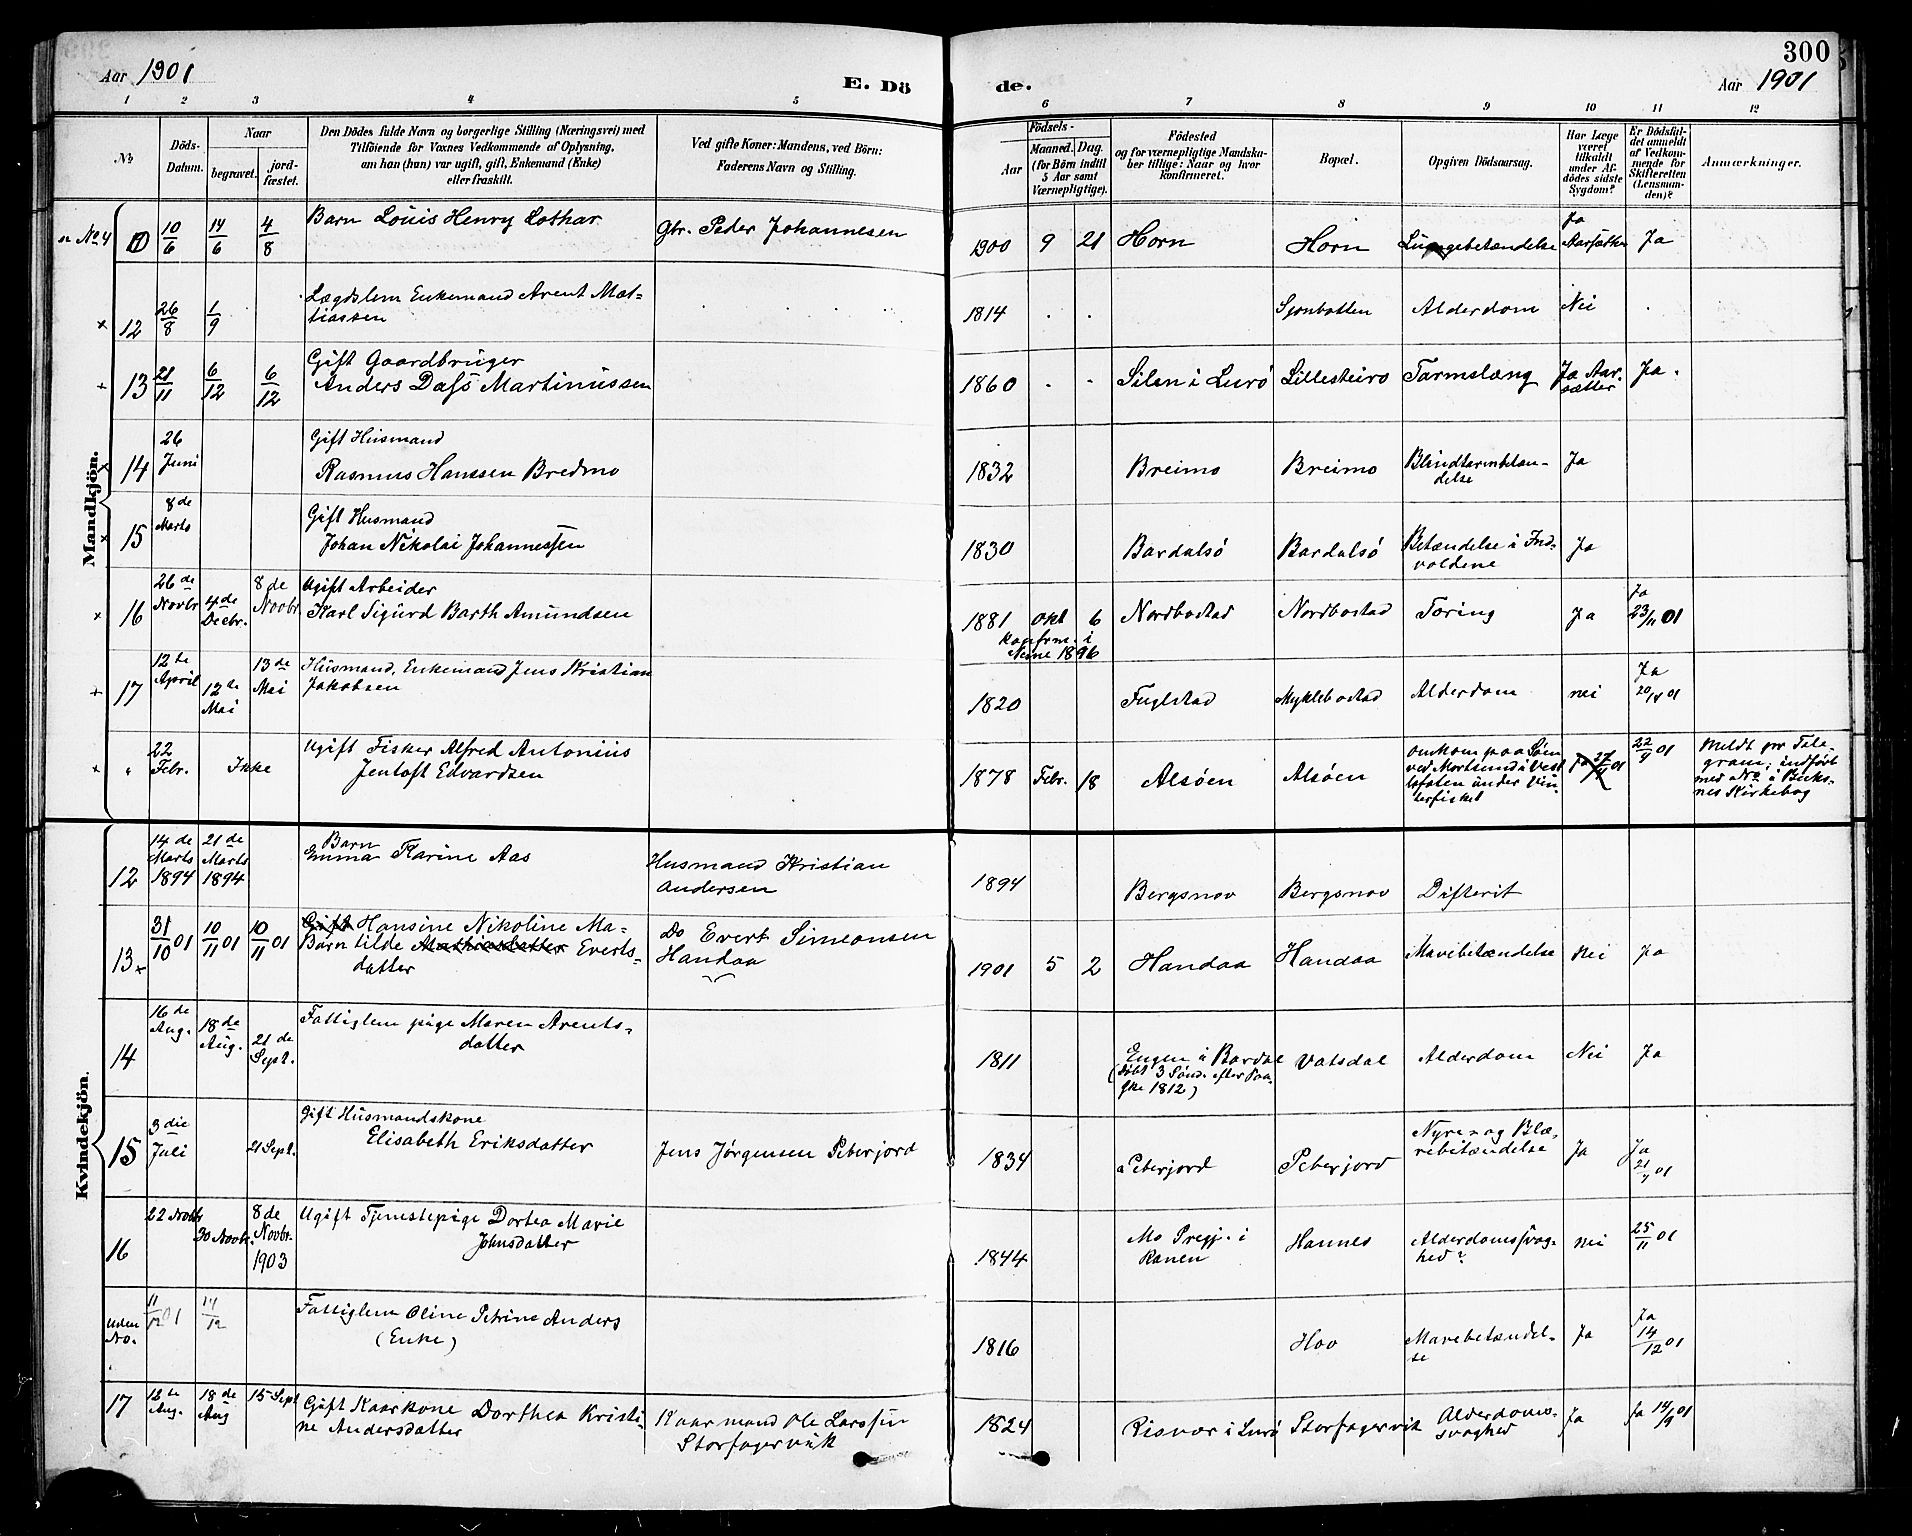 300
Aar 1901
E. Dö de.
Aar 1901
1 2 3 4 5 6 7 8 9 10 11 12
No
Döds-Datum.
Naar
begravet.
jord-fæstet.
Den Dödes fulde Navn og borgerlige Stilling (Næringsvei) med
Tilföiende for Voxnes Vedkommende af Oplysning,
om han (hun) var ugift, gift, Enkemand (Enke)
eller fraskilt.
Ved gifte Koner: Mandens, ved Börn:
Faderens Navn og Stilling.
Födsels-
Aar
Maaned. Dag.
(for Börn indtil
5 Aar samt
Værnepligtige).
Födested
og for værnepligtige Mandska-
ber tillige: Naar og hvor
konfirmeret.
Bopæl.
Opgiven Dödsaarsag.
Har Læge
været
tilkaldt
under Af-
dödes sidste
Sygdom?
Er Dödsfal-
det anmeldt
af Vedkom-
mende for
Skifteretten
(Lensman-
den)?
Anmærkninger.
Mandkjön.
10 10/6 14/6 4/8 Barn Louis Henry Lothar Gbr. Peder Johannesen 1900 9 21 Horn Horn Lungebetændelse Ja Aarsæther Ja
+ 12 26/8 1/9 Lægdslem Enkemand Arent Mat-
tiassen 1814 . . Sjonbotten Alderdom Nei .
+ 13 21/11 6/12 6/12 Gift Gaardbruger
Anders Dass Martinussen 1860 . . Silen i Lurö Lillesteiro Tarmslæng Ja Aar-
sætter Ja.
+ 14 26 Juni Gift Husmand
Rasmus Hanssen Bredmo 1832 Breimo Breimo Blindtarmbetæn-
delse Ja
+ 15 8de Marts Gift Husmand
Johan Nikolai Johannessen 1830 Bardalsö Bardalsö Betændelse i Ind-
voldene Ja
+ 16 26de Novbr 4de Decbr. 8de Novbr. Ugift Arbeider
Karl Sigurd Barth Amundsen 1881 Okt 6 Nordbostad Nordbostad Tæring Ja Ja 23/11 01
konfrm. i
Nesne 1896
+ 17 12te April 12te Mai 13de Mai Husmand, Enkemand Jens Kristian
Jakobsen 1820 Fuglstad Myklebostad Alderdom nei Ja 20/4 01
+ " 22 Febr. Ikke Ugift Fisker Alfred Antonius
Jentoft Edvardsen 1878 Febr. 18 Alsöen Alsöen omkom paa Söen
ved Mortsund i Vest
lofoten under Vin-
terfisket 22/4 01 Meldt pr Tele-
gram; indfört
med No i Buks-
nes Kirkebog
Kvindekjön.
12 14de Marts 1894 21de Marts 1894 Barn
Emma Karine Aas Husmand Kristian
Andersen 1894 Bergsnov Bergsnov Difterit
13+ 31/10 01 10/11 01 10/11 01 Gift Hansine Nikoline Ma-
Barn tilde Mathiasdatter Everts-
datter Do Evert Simeonsen
Handaa 1901 5 2 Handaa Handaa Mavebetændelse Nei Ja
14 16de Aug. 18de Aug. 21de Sept. Fattiglem pige Maren Arents-
datter 1811 Engen i Bardal
(döbt 3 Sönd. efter Paa-
ske 1812) Vatsdal Alderdom Nei Ja
15 3die Juli 21 Sept. Gift Husmandskone
Elisabeth Eriksdatter Jens Jørgensen Peterjord 1834 Peterjord Peterjord Nyre- og Blæ-
rebetændelse Ja Ja 21/7 01
16 22 Novbr 30 Novbr. 8de Novbr. 1903 Ugift Tjenestepige Dortea Marie
Johnsdatter 1844 Mo Pregj. i
Ranen Hannes Alderdomssvag-
hed? nei 25/11 01
uden No. 11/12 01 14/12 Fattiglem Oline Petrine Anders
(Enke) 1816 Hov Mavebetændel-
se Ja Ja 14/12 01
17 12te Aug. 18de Aug 15 Sept Gift Kaarkone Dorthea Kristi-
ne Andersdatter Kaarmand Ole Larssen
Storfagervik 1824 Risvær i Lurö Storfagervik Alderdoms-
svaghed Ja Ja 14/9 01